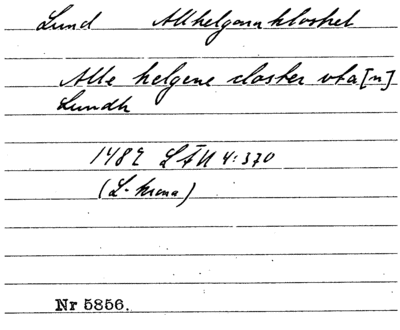 Lund Allhelgonaklostret
Alle helgene closter vta[n]
Lundh
1482 LÄU 4:370
(L. krona)
Nr 5856.